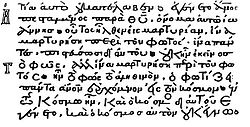 τία αὐτὸ οὐ κατέλαβεν· ἐγένετο ἄνος ἀ
πεσταλμένος παρὰ θυ, ὄνομα αὐτῷ ἰω
άννης· οὗτος ἦλθεν εἰς μαρτυρίαν, ἵνα
μαρτυρήσῃ περὶ τοῦ φωτός, ἵνα πάν
τες πιστεύσωσι δι' αὐτοῦ· οὐκ ἦν ἐκεῖνος
τὸ φῶς, ἀλλ' ἵνα μαρτυρήσῃ περὶ τοῦ φω
τός· ἦν τὸ φῶς τὸ ἀληθινόν, ὃ φωτίζει
πάντα ἄνον ἐρχόμενον εἰς τὸν κόσμον· ἐν
τῷ κόσμῳ ἦν, καὶ ὁ κόσμος δι' αὐτοῦ ἐγέ
νετο, καὶ ὁ κόσμος αὐτὸν οὐκ ἔγνω·